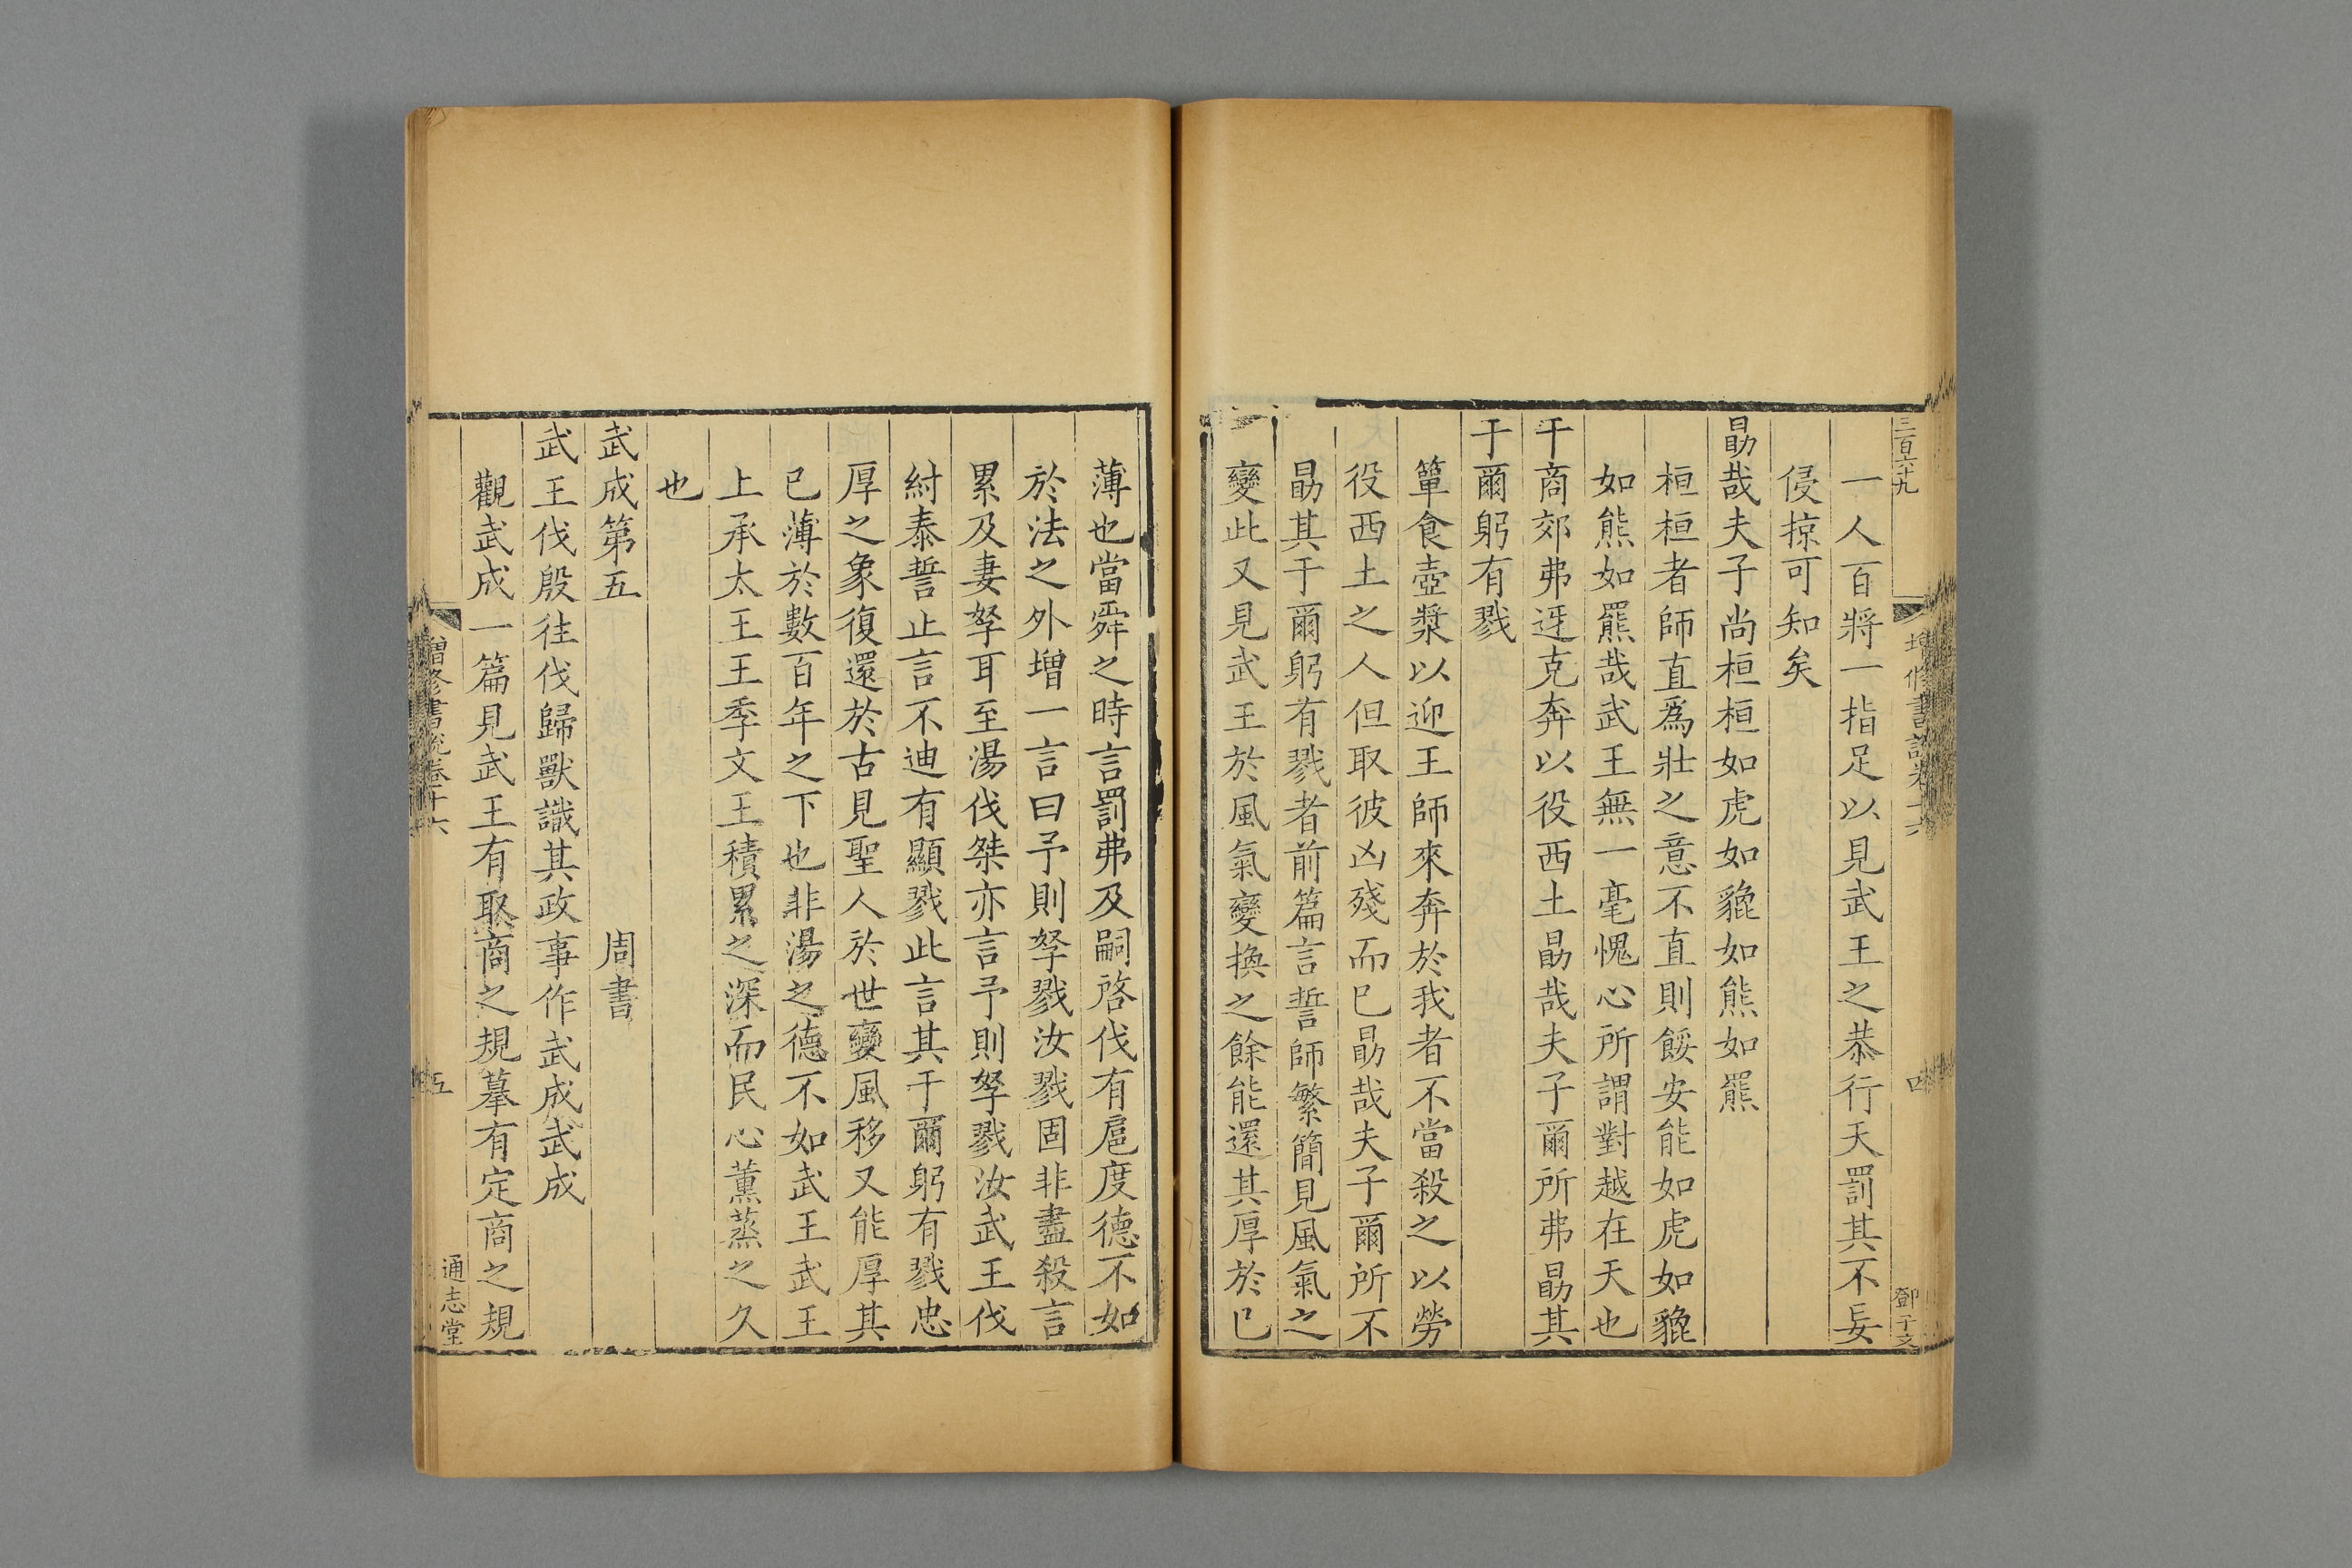 三百六十九
一人百將一指足以見武王之恭行天罰其不妄
侵掠可知矣
勗哉夫子尚桓桓如虎如貔如熊如羆
桓桓者師直爲壯之意不直則餒安能如虎如貔
如熊如羆哉武王無一毫愧心所謂對越在天也
于商郊弗迓克奔以役西土勗哉夫子爾所弗勗其
于爾躬有戮
簞食壺漿以迎王師來奔於我者不當殺之以勞
役西土之人但取彼凶殘而已勗哉夫子爾所不
勗其于爾躬有戮者前篇言誓師繁簡見風氣之
變此又見武王於風氣變換之餘能還其厚於已
薄也當舜之時言罰弗及嗣啓伐有扈度德不如
於法之外增一言曰予則孥戮汝戮固非盡殺言
累及妻孥耳至湯伐桀亦言予則孥戮汝武王伐
紂泰誓止言不迪有顯戮此言其于爾躬有戮忠
厚之象復還於古見聖人於世變風移又能厚其
已薄於數百年之下也非湯之德不如武王武王
上承太王王季文王積累之深而民心薰蒸之久
也
武成第五 周書
武王伐殷往伐歸獸識其政事作武成武成
觀武成一篇見武王有取商之規摹有定商之規
增修書說卷十六 五 通志堂